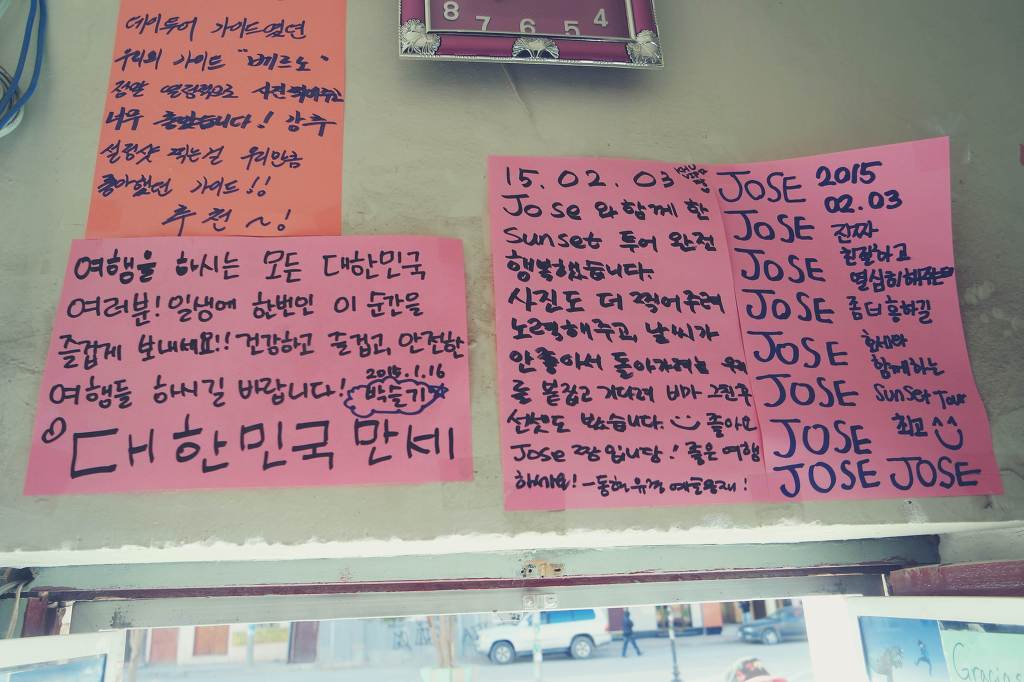 데이투어 가이드였던
우리의 가이드 "베르노"
정말 열정적으로 사진찍어주고
너무 좋았습니다! 강추
설정샷 찍는걸 우리만큼
좋아했던 가이드!!
추천~!
8 7 6 5 4
여행을 하시는 모든 대한민국
여러분! 일생에 한번인 이 순간을
즐겁게 보내세요!! 건강하고 즐겁고, 안전한
여행들 하시길 바랍니다!
2015.1.16
박슬기
대한민국만세
15.02.03
Jose 와 함께 한
Sunset 투어 완전
행복했습니다.
사진도 더 찍어주려
노력해주고, 날씨가
안좋아서 돌아가려는 우리
를 붙잡고 기다려 비마 그친후
선셋도 봤습니다. 좋아요
Jose 짱입니당! 좋은 여행
하세요!
JOSE 2015
02.03
JOSE 진짜
친절하고
JOSE 열심히해주는
JOSE 좀 더 흥하길
JOSE
함께하는
JOSE Sunset Tour
JOSE 최고 ^^
JOSE JOSE
Gracias